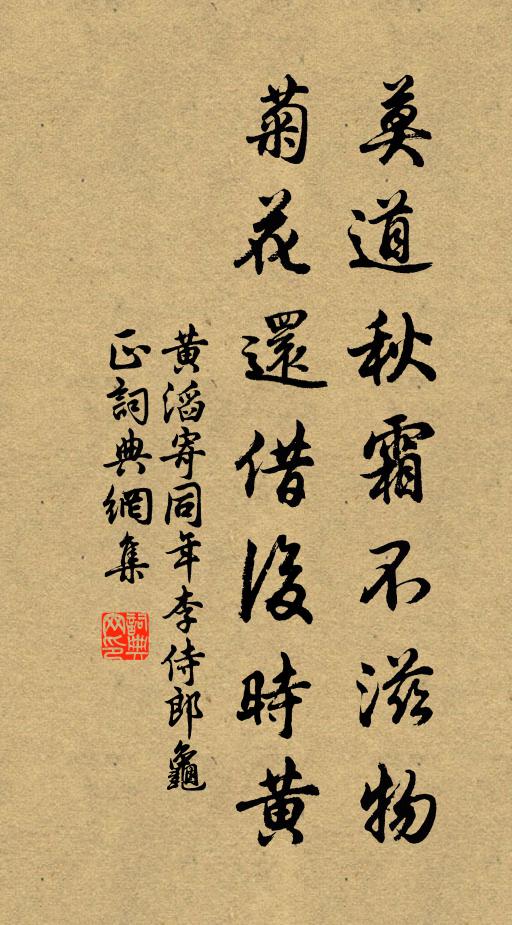 莫道秋霜不滋物
菊花還借後時黃
黃滔寄同年李侍郎龜
正詞典網集
詞典網印